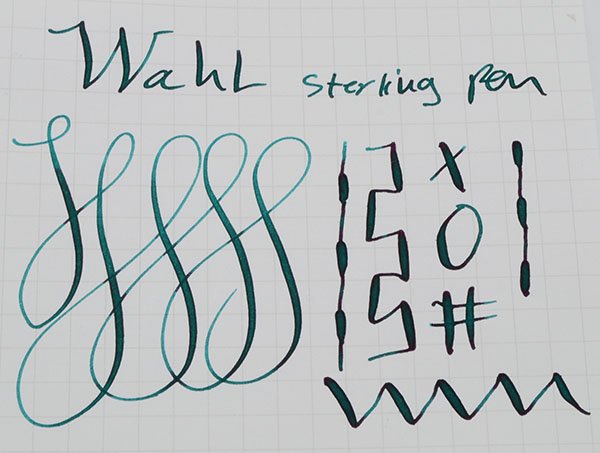 Wahl sterling pen
X
O
#